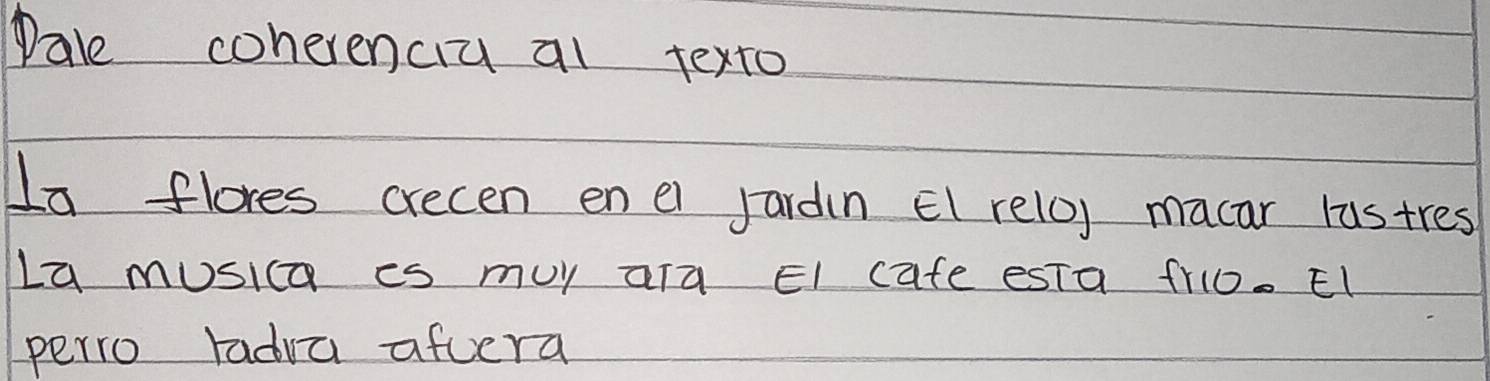 Dale coherencia al texto
La flores crecen en el jardin El reloj macar las tres
La musica es muy ara El cafe esta frio. El
perro ladra afuera